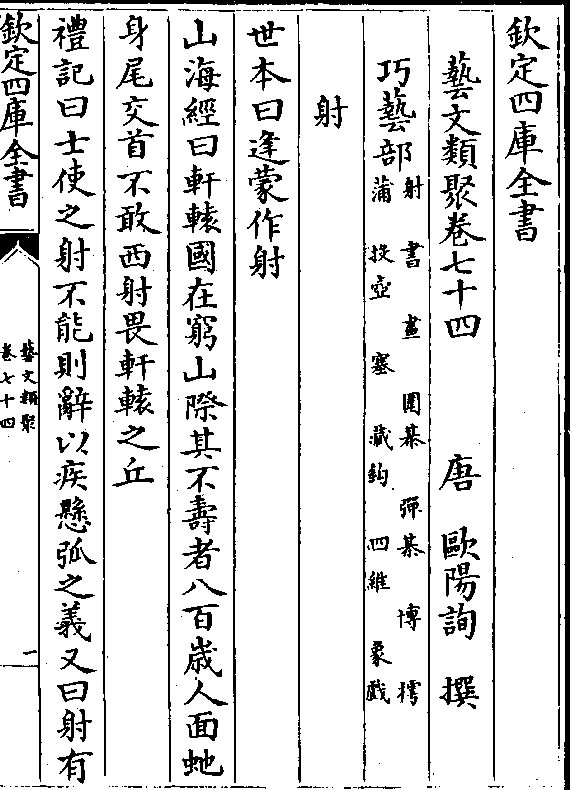 欽定四庫全書
藝文類聚卷七十四　唐　歐陽詢　撰
巧藝部射　書　畫　圍棊　彈棊　博　樗
蒲　投壺　塞　藏鈎　四維　象戲
射
世本曰逢蒙作射
山海經曰軒轅國在窮山際其不壽者八百歲人面虵
身尾交首不敢西射畏軒轅之丘
禮記曰士使之射不能則辭以疾懸弧之義又曰射有
欽定四庫全書
藝文類聚
卷七十四
一